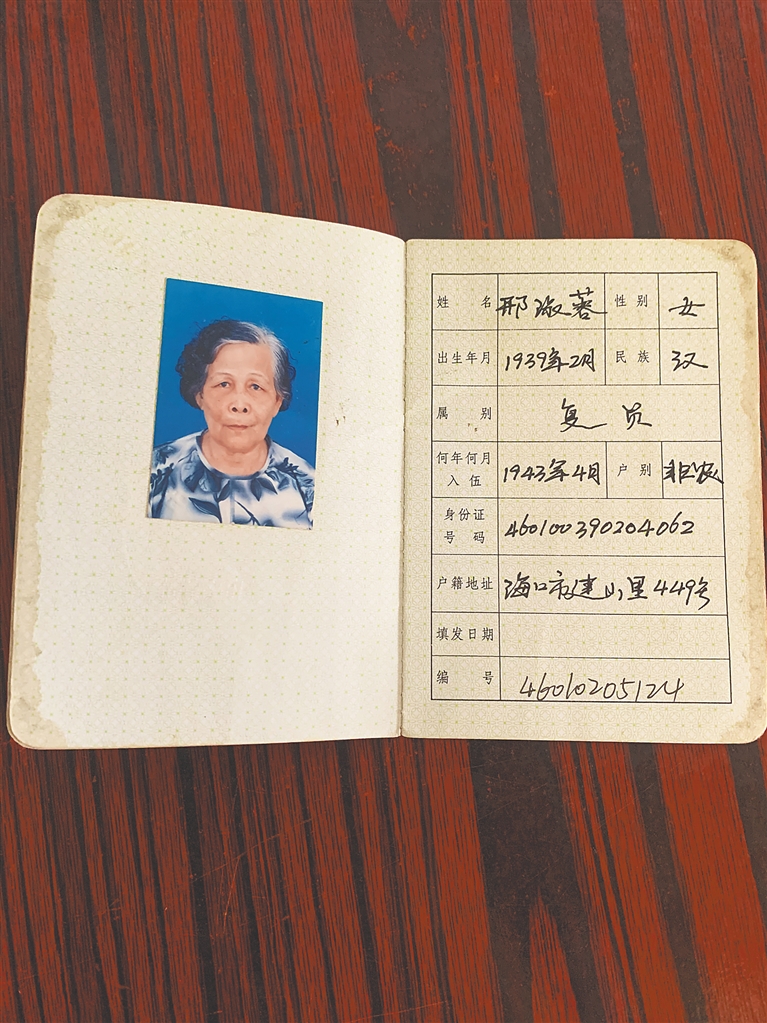 姓名 邢淑蓉 性别 女
出生年月 1939年2月 民族 汉
属别 复员
何年何月入伍 1943年4月 户别 非农
身份证号码 460100390204062
户籍地址 海口市建山里449号
填发日期
编号 46010205124